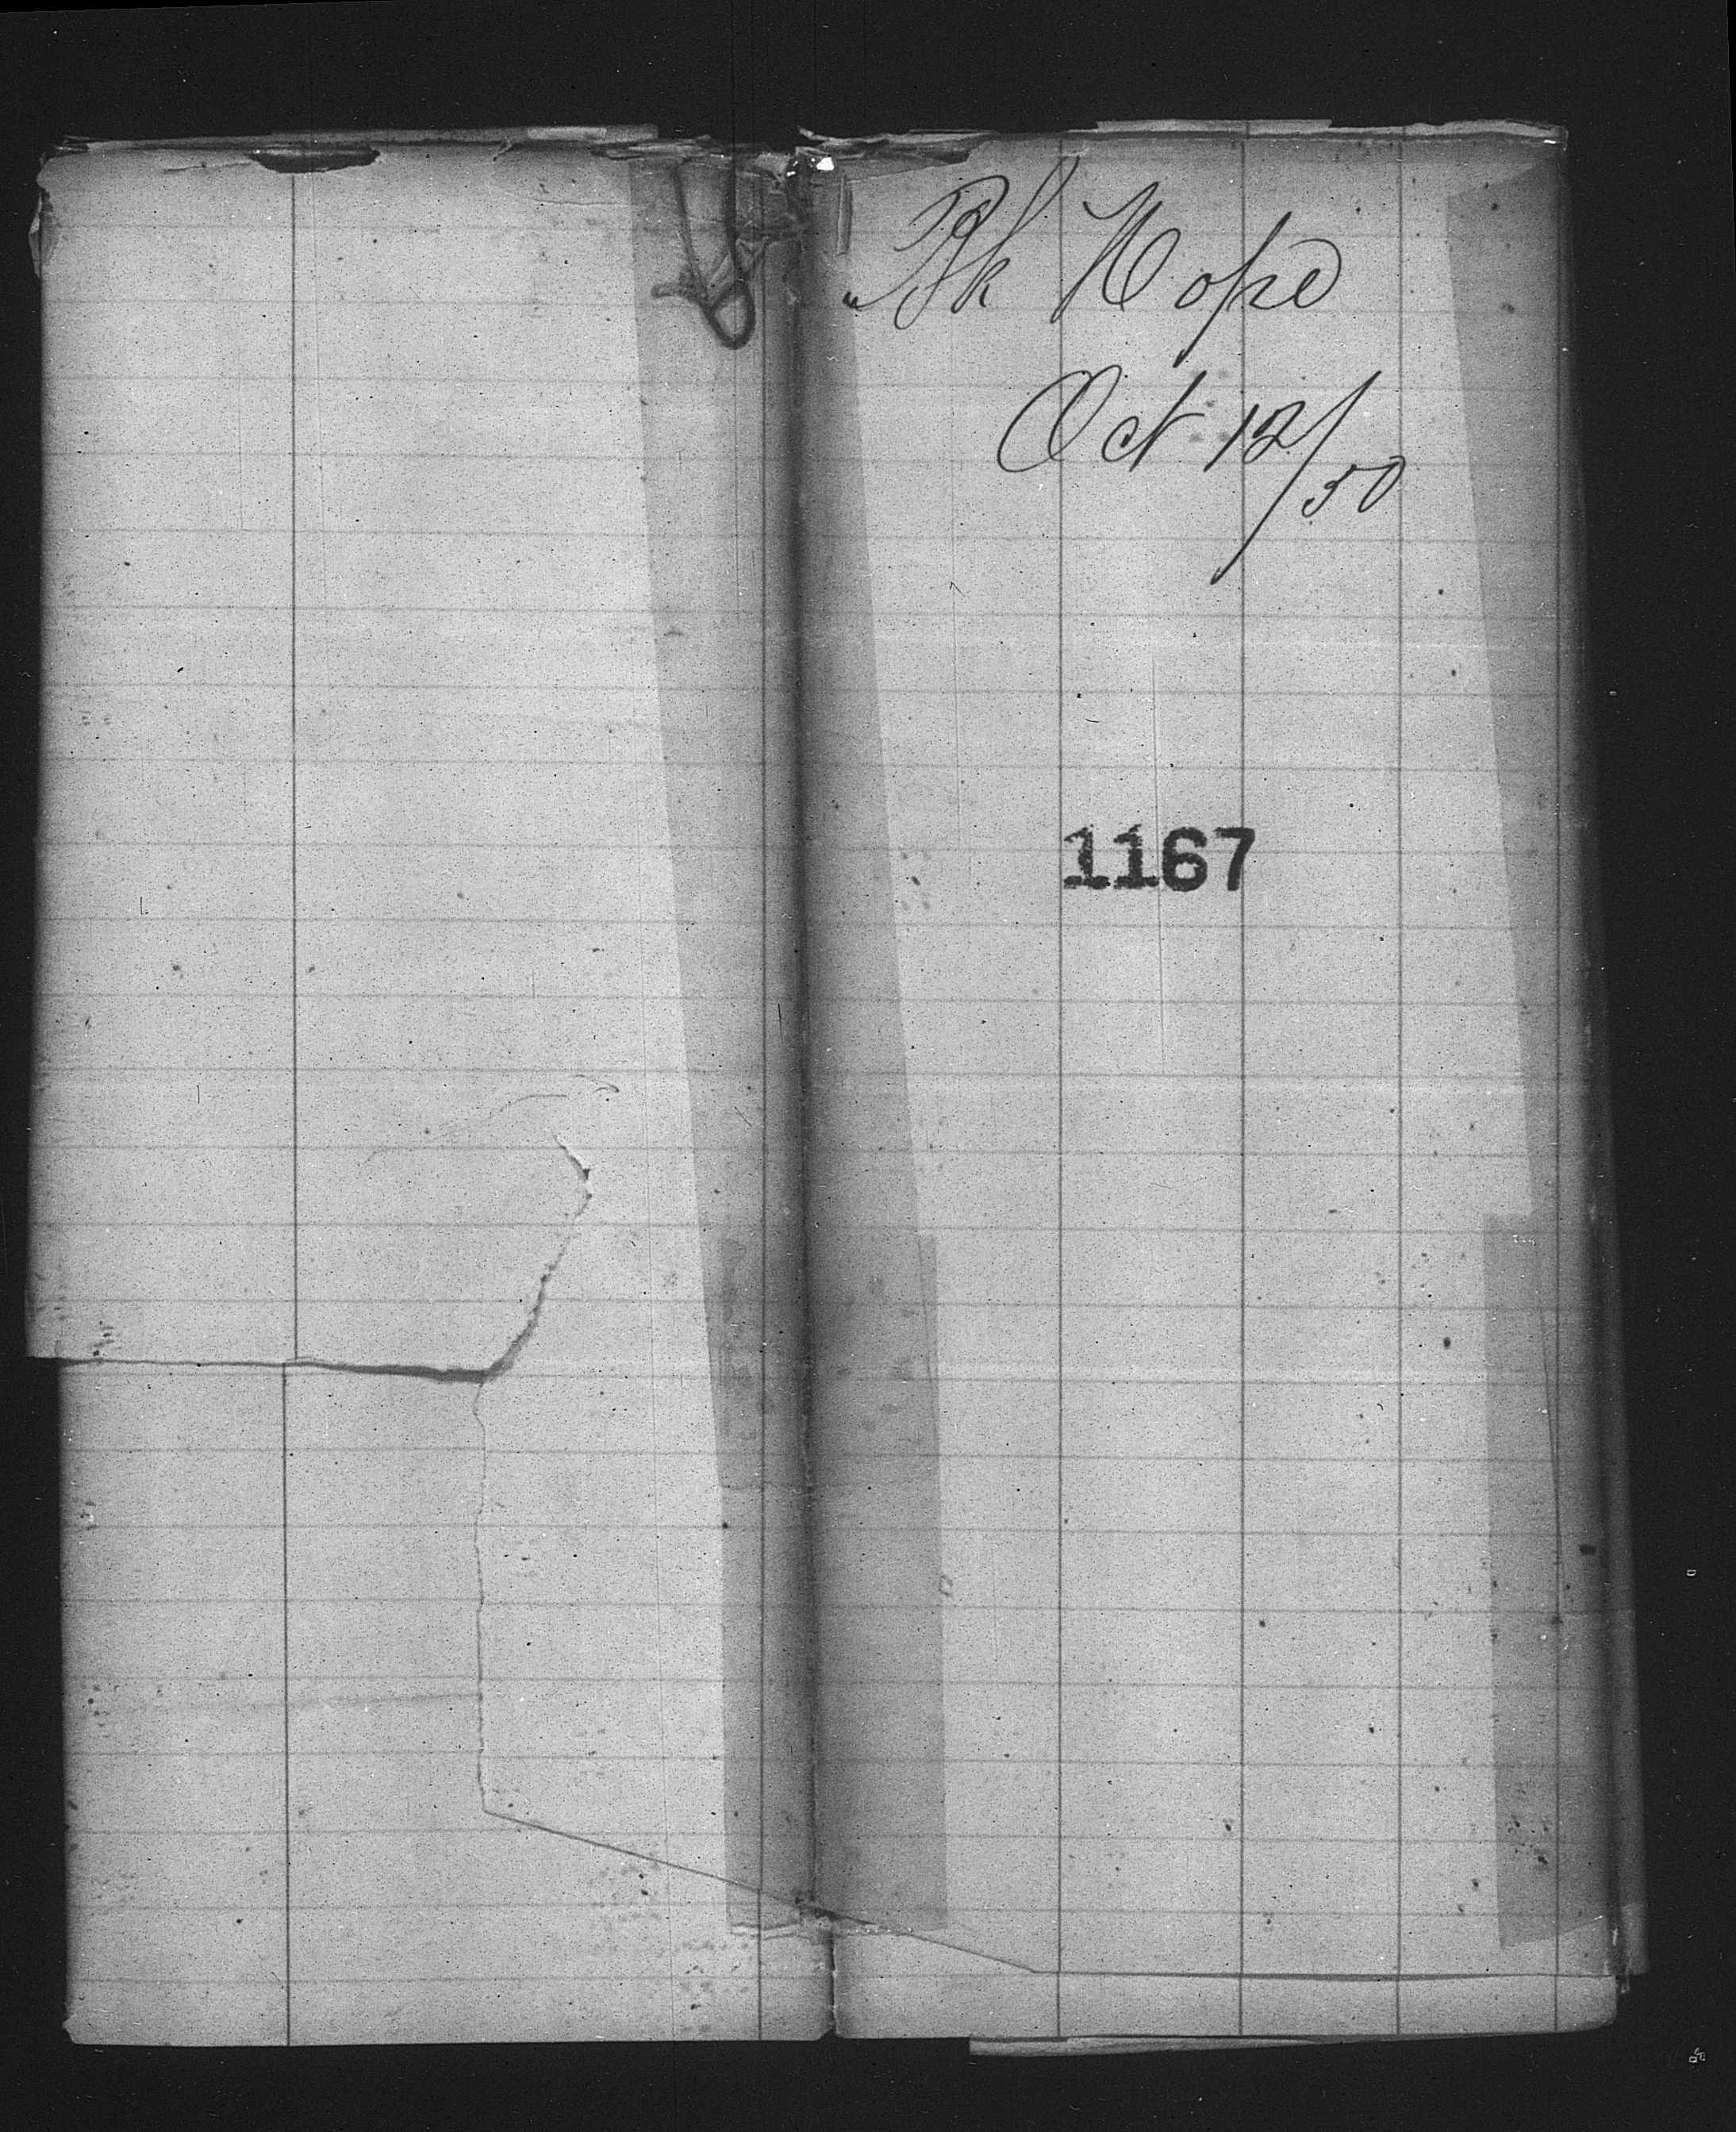 Bk Hope
Oct 12/50
1167